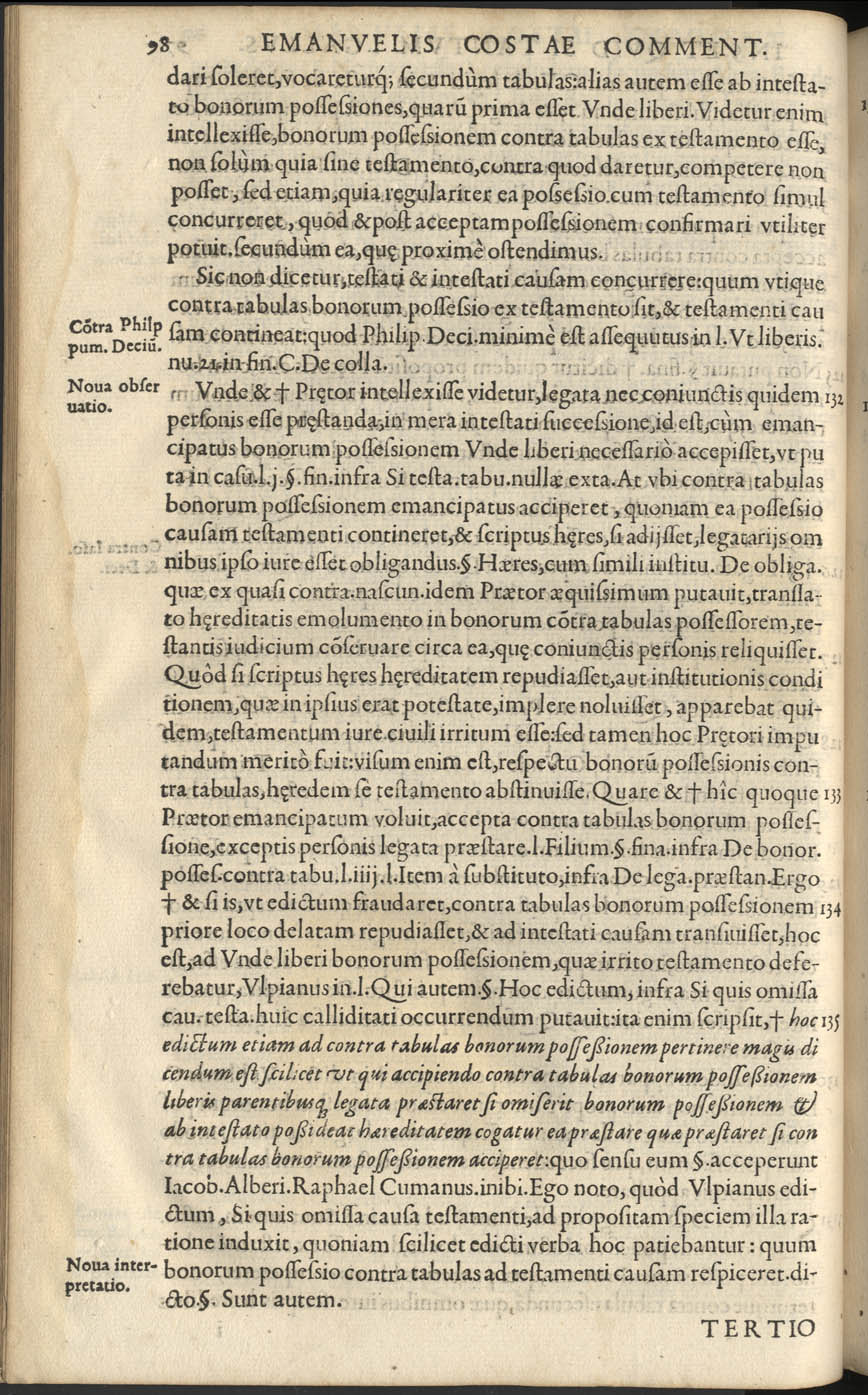 98 EMANVELIS COSTAE COMMENT.
dari ſoleret,vocareturq́; ſecundùm tabulas:alias autem eſſe ab inteſta-
to bonorum poſſeſsiones,quarū prima eſſet Vnde liberi.Videtur enim
intellexiſſe,bonorum poſſeſsionem contra tabulas ex teſtamento eſſe,
non ſolùm quia ſine teſtamento,contra quod daretur,competere non
poſſet, ſed etiam,quia regulariter ea poſseſsio.cum teſtamento ſimul
concurreret, quòd &poſt acceptam poſſeſsionem confirmari vtiliter
potuit.ſecundùm ea,quę proximè oſtendimus.
Sic non dicetur,teſtati & inteſtati cauſam concurrere:quum vtique
contra tabulas bonorum poſſeſsio ex teſtamento ſit,& teſtamenti cau
Cōtra Philp
pum. Deciū.
ſam contineat:quod Philip.Deci.minimè eſt aſſequutus in l.Vt liberis.
nu.21.in fin.C.De colla.
Noua obſer
uatio.
Vnde & † Prętor intellexiſſe videtur,legata nec coniunctis quidem 132
perſonis eſſe pręſtanda,in mera inteſtati ſucceſsione,id eſt,cùm eman-
cipatus bonorum poſſeſsionem Vnde liberi neceſſariò accepiſſet,vt pu
ta in caſu.l.j.§.fin.infra Si teſta.tabu.nullæ exta.At vbi contra tabulas
bonorum poſſeſsionem emancipatus acciperet, quoniam ea poſſeſsio
cauſam teſtamenti contineret,& ſcriptus hęres,ſi adijſſet,legatarijs om
nibus ipſo iure eſſet obligandus.§.Hæres,cum ſimili inſtitu. De obliga.
quæ ex quaſi contra.naſcun.idem Prætor æquiſsimum putauit,tranſla-
to hęreditatis emolumento in bonorum cōtra tabulas poſſeſſorem,te-
ſtantis iudicium cōſeruare circa ea,quę coniunctis perſonis reliquiſſet.
Quòd ſi ſcriptus hęres hęreditatem repudiaſſet,aut inſtitutionis condi
tionem,quæ in ipſius erat poteſtate,implere noluiſſet, apparebat qui-
dem,teſtamentum iure ciuili irritum eſſe:ſed tamen hoc Prętori impu
tandum meritò fuit:viſum enim eſt,reſpectu bonorū poſſeſsionis con-
tra tabulas,hęredem ſe teſtamento abſtinuiſſe.Quare & † hîc quoque 133
Prætor emancipatum voluit,accepta contra tabulas bonorum poſſeſ-
ſione,exceptis perſonis legata præſtare.l.Filium.§.fina.infra De bonor.
poſſeſ.contra tabu.l.iiij.l.Item à ſubſtituto,infra De lega.præſtan.Ergo
† & ſi is,vt edictum fraudaret,contra tabulas bonorum poſſeſsionem 134
priore loco delatam repudiaſſet,& ad inteſtati cauſam tranſiuiſſet,hoc
eſt,ad Vnde liberi bonorum poſſeſsionem,quæ irrito teſtamento defe-
rebatur,Vlpianus in.l.Qui autem.§.Hoc edictum, infra Si quis omiſſa
cau.teſta.huic calliditati occurrendum putauit:ita enim ſcripſit,† hoc 135
edictum etiam ad contra tabulas bonorum poſſeßionem pertinere magis di
cendum eſt ſcilicet vt qui accipiendo contra tabulas bonorum poſſeßionem
liberis parentibusq́ legata præſtaret ſi omiſerit bonorum poſſeßionem &
ab inteſtato poßideat hæreditatem cogatur ea præſtare quæ præſtaret ſi con
tra tabulas bonorum poſſeßionem acciperet:quo ſenſu eum §.acceperunt
Iacob.Alberi.Raphael Cumanus.inibi.Ego noto, quòd Vlpianus edi-
ctum, Si quis omiſſa cauſa teſtamenti,ad propoſitam ſpeciem illa ra-
tione induxit, quoniam ſcilicet edicti verba hoc patiebantur: quum
Noua inter-
pretatio.
bonorum poſſeſsio contra tabulas ad teſtamenti cauſam reſpiceret.di-
cto.§. Sunt autem.
TERTIO